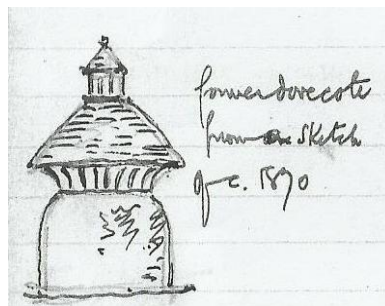 former dovecote
from a sketch
of c. 1890